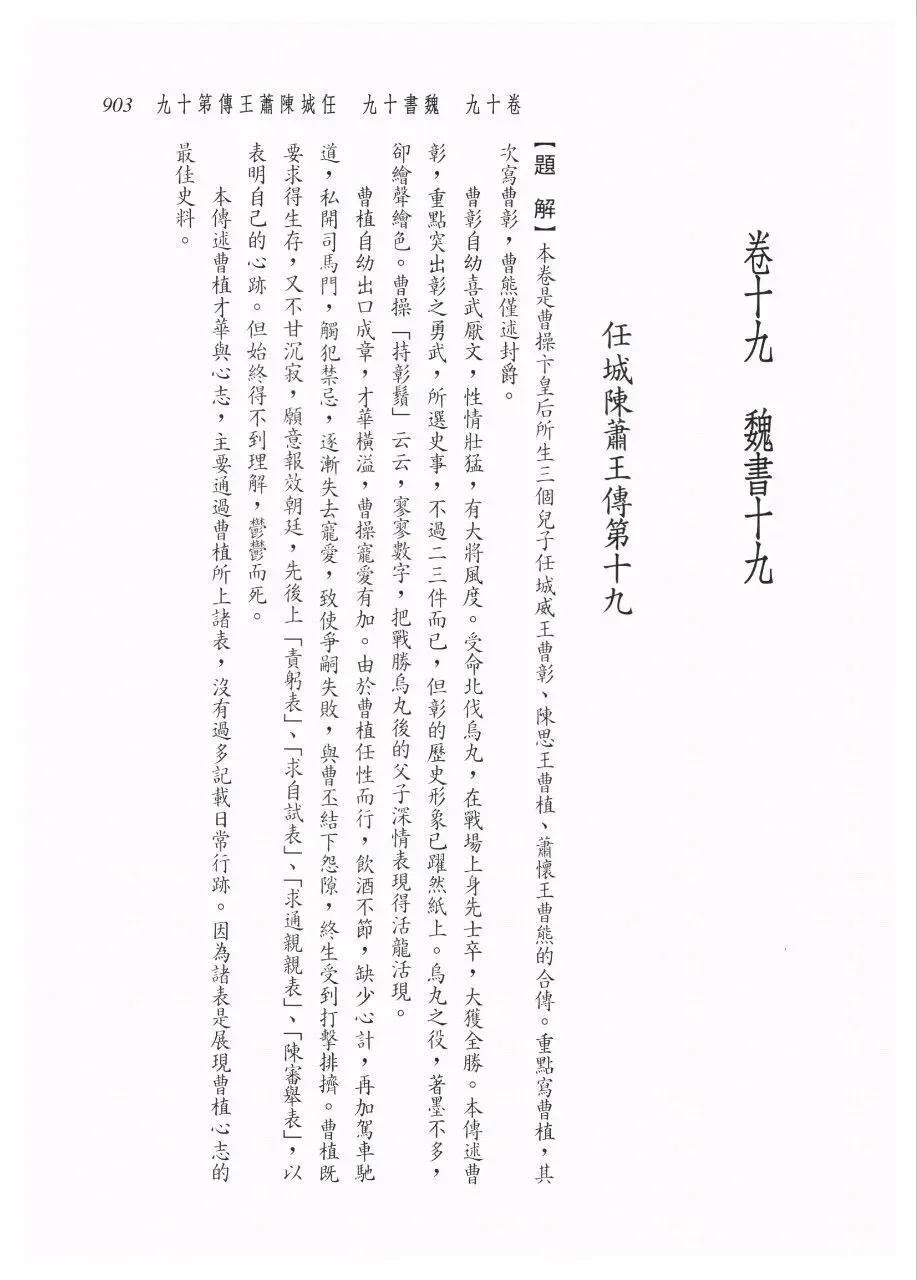 903 九十第傳王蕭陳城任 九十書魏 九十卷
卷十九 魏書十九
任城陳蕭王傳第十九
【題 解】本卷是曹操卞皇后所生三個兒子任城威王曹彰、陳思王曹植、蕭懷王曹熊的合傳。重點寫曹植,其
次寫曹彰,曹熊僅述封爵。
曹彰自幼喜武厭文,性情壯猛,有大將風度。受命北伐烏丸,在戰場上身先士卒,大獲全勝。本傳述曹
彰,重點突出彰之勇武,所選史事,不過二三件而已,但彰的歷史形象已躍然紙上。烏丸之役,著墨不多,
卻繪聲繪色。曹操「持彰鬚」云云,寥寥數字,把戰勝烏丸後的父子深情表現得活龍活現。
曹植自幼出口成章,才華橫溢,曹操寵愛有加。由於曹植任性而行,飲酒不節,缺少心計,再加駕車馳
道,私開司馬門,觸犯禁忌,逐漸失去寵愛,致使爭嗣失敗,與曹丕結下怨隙,終生受到打擊排擠。曹植既
要求得生存,又不甘沉寂,願意報效朝廷,先後上「責躬表」、「求自試表」、「求通親親表」、「陳審舉表」,以
表明自己的心跡。但始終得不到理解,鬱鬱而死。
本傳述曹植才華與心志,主要通過曹植所上諸表,沒有過多記載日常行跡。因為諸表是展現曹植心志的
最佳史料。